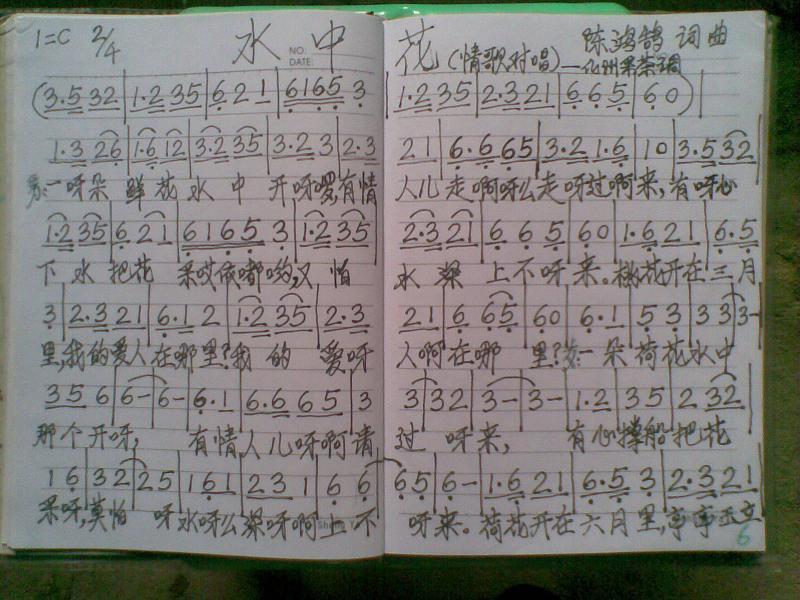 1=C 2/4 水中花(情歌对唱) 陈鸿鹄 词曲
NO:
DATE:
—化州采茶调
(3·5 32|1·2 35|6 2 1|6165 3|1·2 35|2·3 21|6 6 5|6 0)|
1·3 26|1·6 12|3·2 35|3·2 3|2·3 21|6·6 65|3·2 1·6|1 0|3·5 32|
男:一呀朵 鲜花水中 开,呀嗳,有情人儿走啊呀么走呀过啊来,有呀心
1·2 35|6 2 1|6165 3|1·2 35|2·3 21|6 6 5|6 0|1·6 21|6·5
下水把花 采哎依嘟哟,又怕水深 上不呀来。桃花开在三月
3|2·3 21|6·1 2|1·2 35|2·3 21|6 65|6 0|6·1|5 3|3 3|3-|
里,我的爱人在哪里?我的 爱呀人啊在哪 里?女:一朵荷花水中
3 5 6|6-|6-|6·1|6·6 6 5|3 3 32|3-|3-|1·2|3 5|2 32|
那个开呀, 有情人儿呀啊请过 呀来, 有心撑船把花
1 6|3 2|2 5|1 6 1|2 3 1|6 6|6 5|6-|1·6 21|6·5 3|2·3 21|
采呀,莫怕 呀水呀么深呀啊上不 呀来。荷花开在六月里,亭亭玉立
6